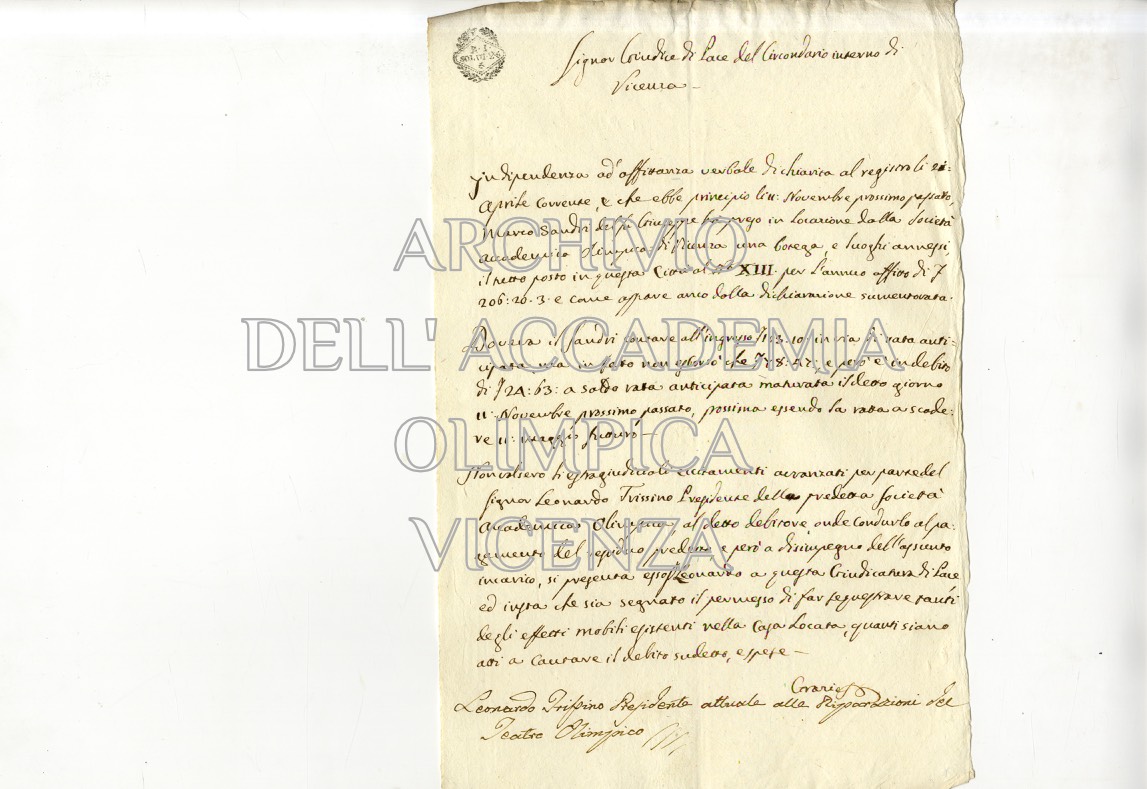 Signor Giudice di Pace del Circondario interno di
Vicenza -
Indipendenza ad' affittanza verbale dichiarita al registro li 21:
Aprile corrente, e che ebbe principio li 11: Novembre prossimo passato,
Marco Sandri del fu Giuseppe ha preso in Locazione dalla Società
Accademica Olimpica di Vicenza una botega, e luoghi annessi,
il tutto posto in questa Città al XIII. per l'annuo affitto di
206: 20. 3. e come appare anco dalla dichiarazione summentovata.
Doveva il Sandri contare all' ingresso in via di rata anti-
cipata, ma in fatto non esborsò che e però è in debito
di 24: 63: a saldo rata anticipata maturata il detto giorno
11: Novembre prossimo passato, prossima essendo la ratta a scade-
re 11: Maggio futuro -
Non valsero li estragiudiciali eccitamenti avvanzati per parte del
Signor Leonardo Trissino Presidente della predetta Società
Accademica Olimpica, al detto debitore, onde condurlo al pa-
gamento del residuo predetto, e però a disimpegno dell' assunto
incarico, si presenta esso Leonardo a questa Giudicatura di Pace
ed insta che sia segnato il permesso di far sequestrare tanti
degli effetti mobili esistenti nella Casa Locata, quanti siano
atti a cautare il debito sudetto, e spese -
Grazie
Leonardo Trissino Presidente attuale alle Ripparazioni del
Teatro Olimpico
ARCHIVIO
DELL' ACCADEMIA
OLIMPICA
VICENZA